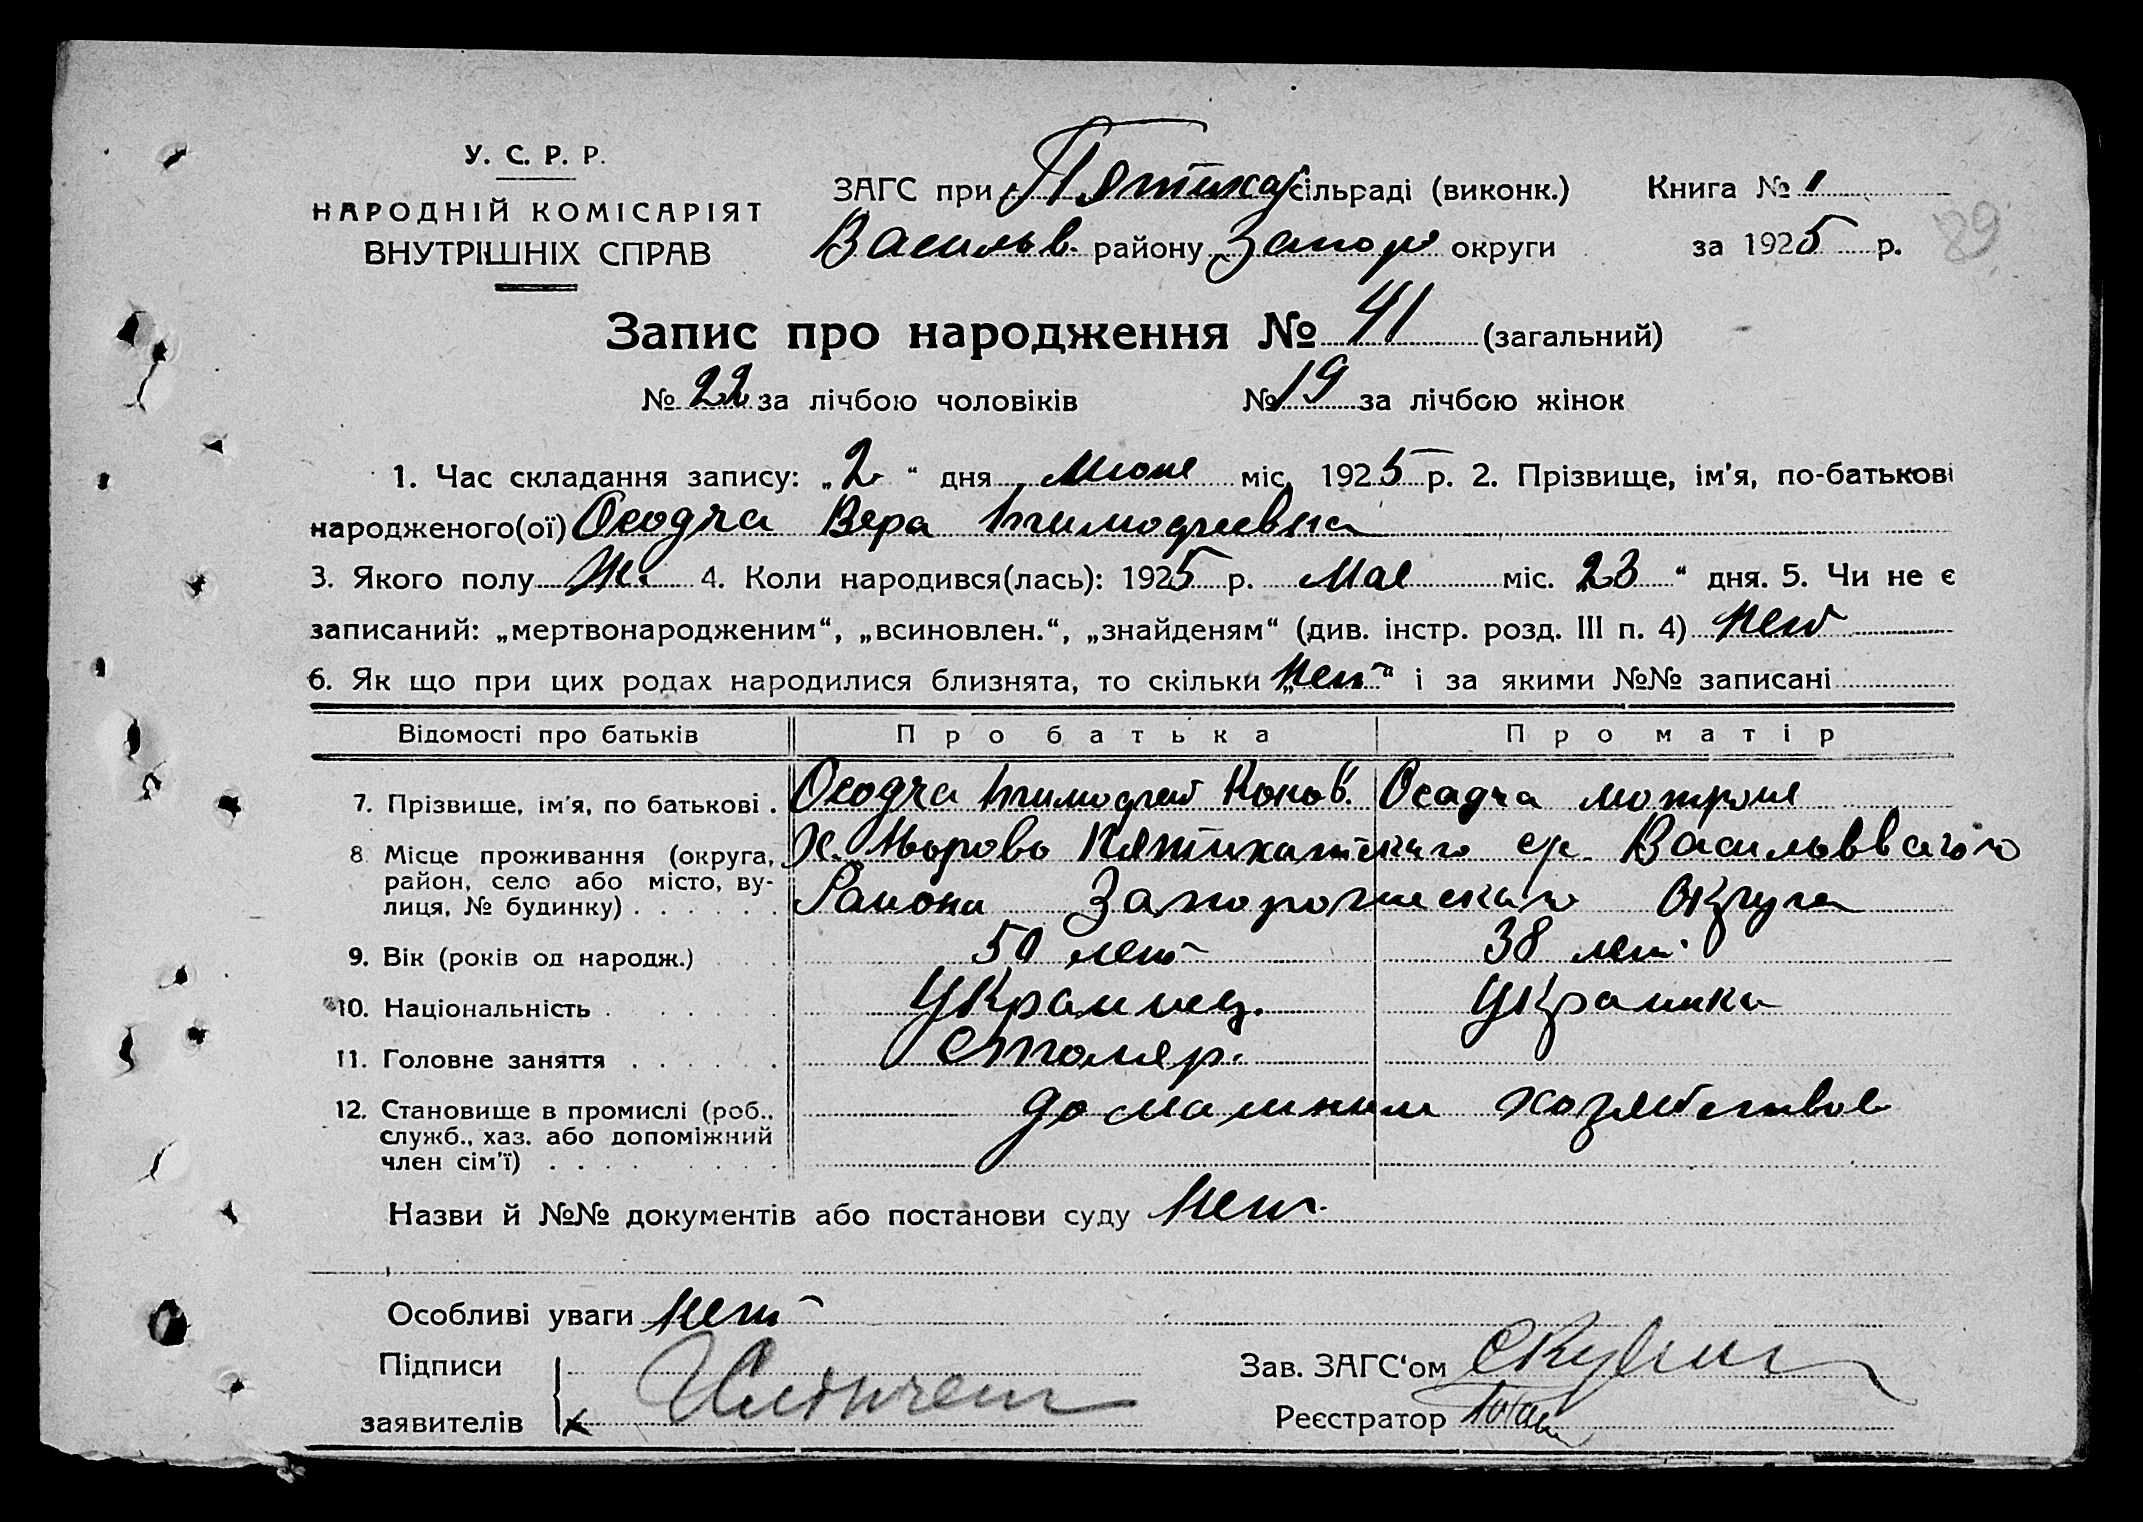 У. С. Р. Р.
НАРОДНІЙ КОМІСАРІЯТ
ВНУТРІШНІХ СПРАВ
ЗАГС при Пятихат сільраді (виконк.) Книга № 1
Васильв. району Запор округи за 1925 р.
89
Запис про народження № 41 (загальний)
№ 22 за лічбою чоловіків № 19 за лічбою жінок
1. Час складання запису: „2“ дня Июня міс. 1925 р. 2. Прізвище, ім'я, по-батькові
народженого(ої) Осодча Вера Тимофеевна
3. Якого полу Же. 4. Коли народився(лась): 1925 р. Мае міс. „23“ дня. 5. Чи не є
записаний: „мертвонародженим“, „всиновлен.“, „знайденям“ (див. інстр. розд. III п. 4) нет
6. Як що при цих родах народилися близнята, то скільки „нет“ і за якими №№ записані
Відомості про батьків Про батька Про матір
7. Прізвище, ім'я, по батькові . Осодча Тимофей Осадча мотроня
8. Місце проживання (округа, Х. Пятихатского ср. Васильввского
район, село або місто, ву- Района Запорожского Округа
лиця, № будинку) . . . . . .
9. Вік (років од народж.) 50 лет 38 лет
10. Національність . Украинец. Украинка
11. Головне заняття . . . . . . Столяр.
12. Становище в промислі (роб., домашним хозяйством
служб., хаз. або допоміжний
член сім'ї) . . . . . . . . .
Назви й №№ документів або постанови суду Нет.
Особливі уваги нет
Підписи Зав. ЗАГС‘ом
заявителів Реєстратор